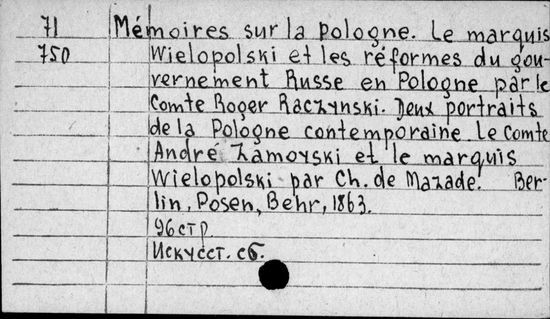 71 Mémoires sur la pologne. Le marquis
750 Wielopolski et les réformes du gou-
vernement Russe en Pologne par le
Comte Roger Raczynski. Deux portraits
de la Pologne contemporaine. Le Comte
André Zamoyski et le marquis
Wielopolski par Ch. de Mazade. Ber-
lin, Posen, Behr, 1863.
96 стр.
Искусст. сб.